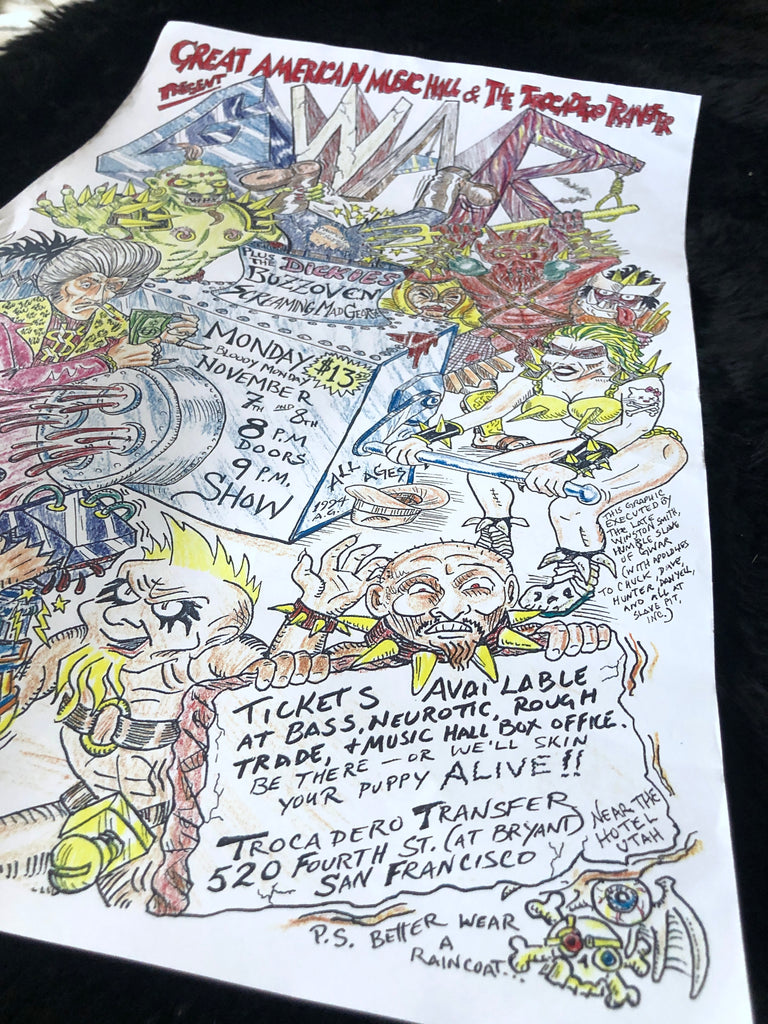 GREAT AMERICAN MUSIC HALL & THE TROCADERO TRANSFER
PRESENT
GWAR
PLUS THE DICKIES
BUZZOVEN
SCREAMING MAD GEORGE
MONDAY
BLOODY MONDAY
$13
NOVEMBER
7TH AND 8TH
8 P.M
DOORS
9 P.M.
SHOW
ALL AGES
1994
A.G.
THIS GRAPHIC
EXECUTED BY
THE LATE
WINSTON SMITH,
HUMBLE SLAVE
OF GWAR
(WITH APOLOGIES
TO CHUCK, DAVE,
HUNTER, DANYELL,
AND ALL AT
SLAVE PIT,
INC.)
TICKETS AVAILABLE
AT BASS, NEUROTIC, ROUGH
TRADE, + MUSIC HALL BOX OFFICE.
BE THERE — OR WE'LL SKIN
YOUR PUPPY ALIVE!!
TROCADERO TRANSFER
520 FOURTH ST. (AT BRYANT)
SAN FRANCISCO
NEAR THE
HOTEL
UTAH
P.S. BETTER WEAR
A
RAINCOAT...